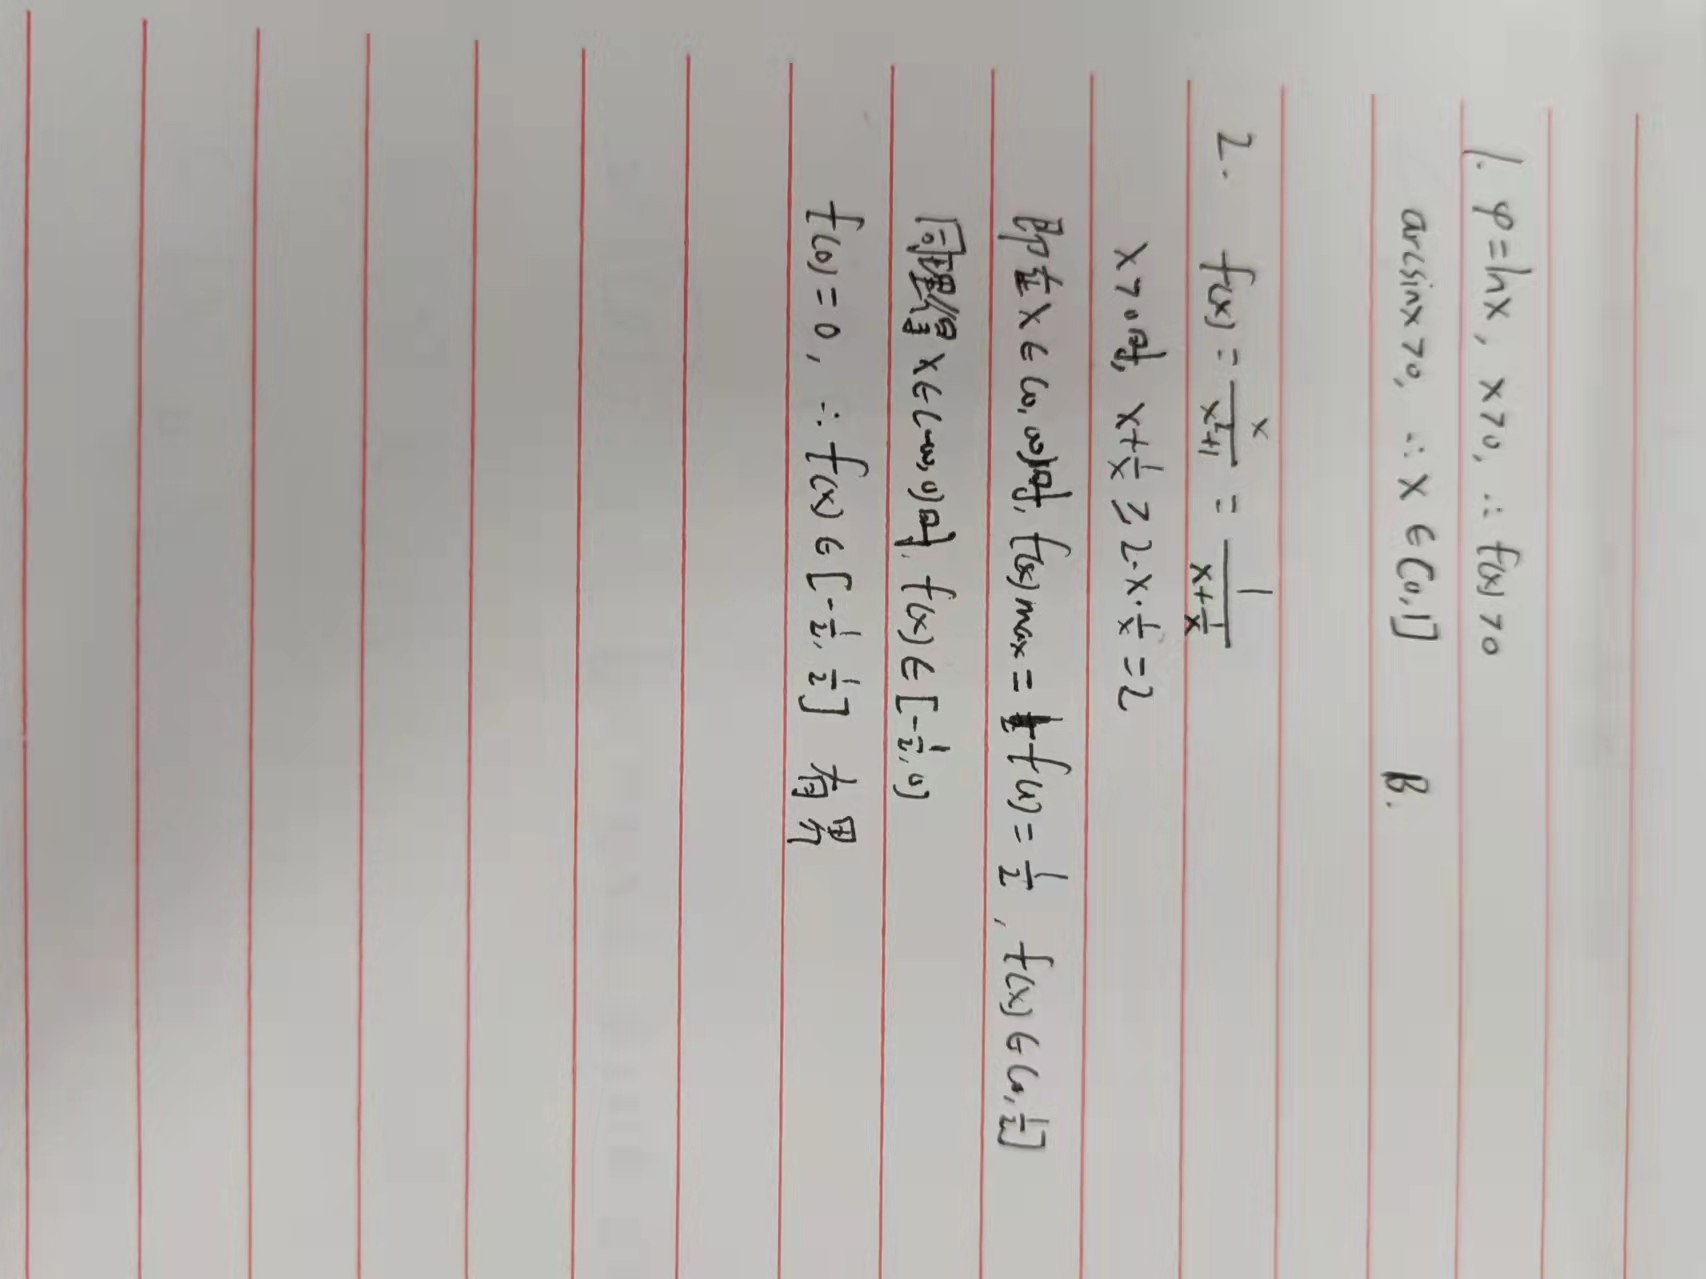 1. φ=lnx, x>0, ∴ f(x)>0
arcsinx>0, ∴ x∈(0,1] B.
2. f(x)=x/(x²+1)=1/(x+1/x)
x>0时, x+1/x≥2·x·1/x=2
即在x∈(0,∞)时, f(x)max=f(1)=1/2, f(x)∈(0,1/2]
同理得x∈(-∞,0)时, f(x)∈[-1/2,0)
f(0)=0, ∴ f(x)∈[-1/2,1/2] 有界